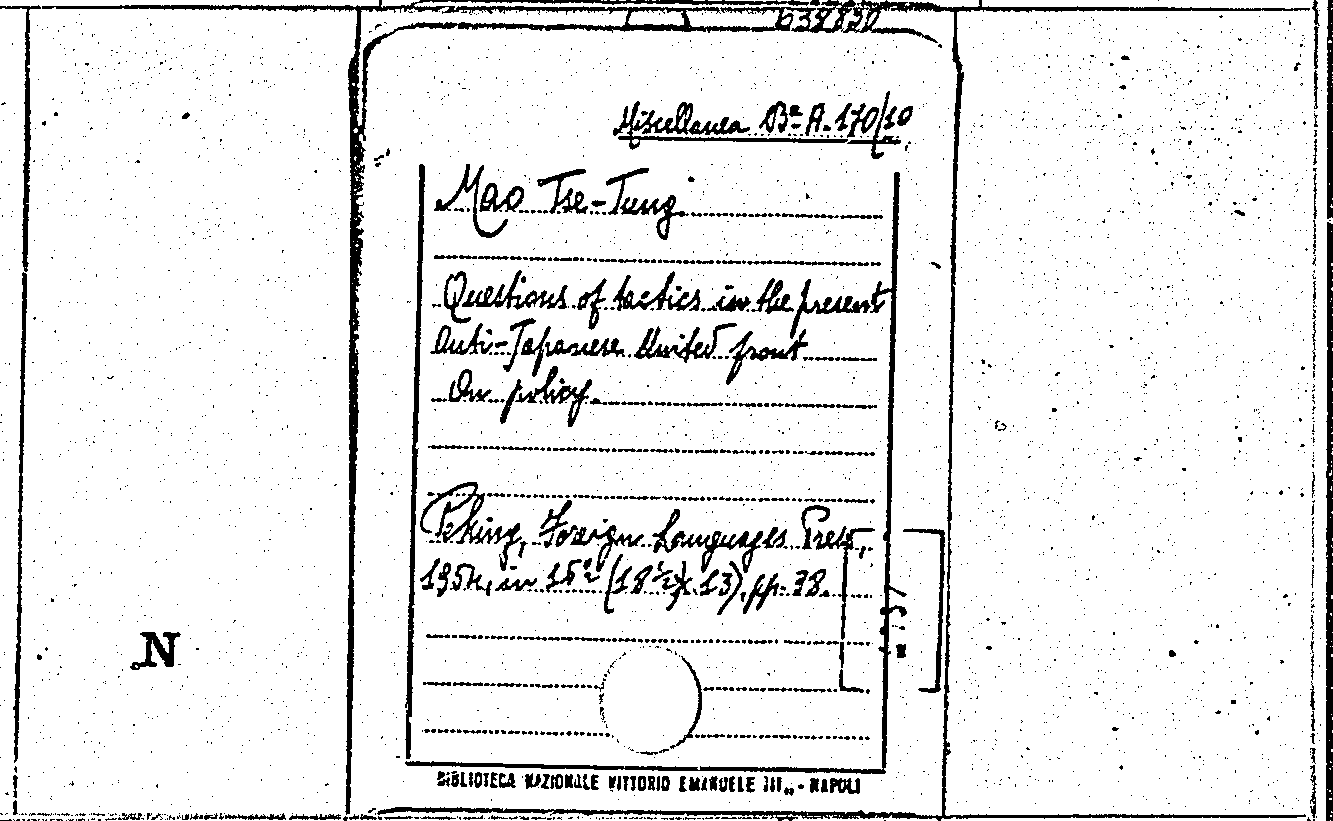 638820
Miscellanea Bª A. 170/10
Mao Tse-Tung.
Questions of tactics in the present
Anti-Japanese United front
On policy.
Peking, Foreign Languages Press,
1954, in 16º (18½x13), pp. 38.
N
BIBLIOTECA NAZIONALE VITTORIO EMANUELE III„ - NAPOLI